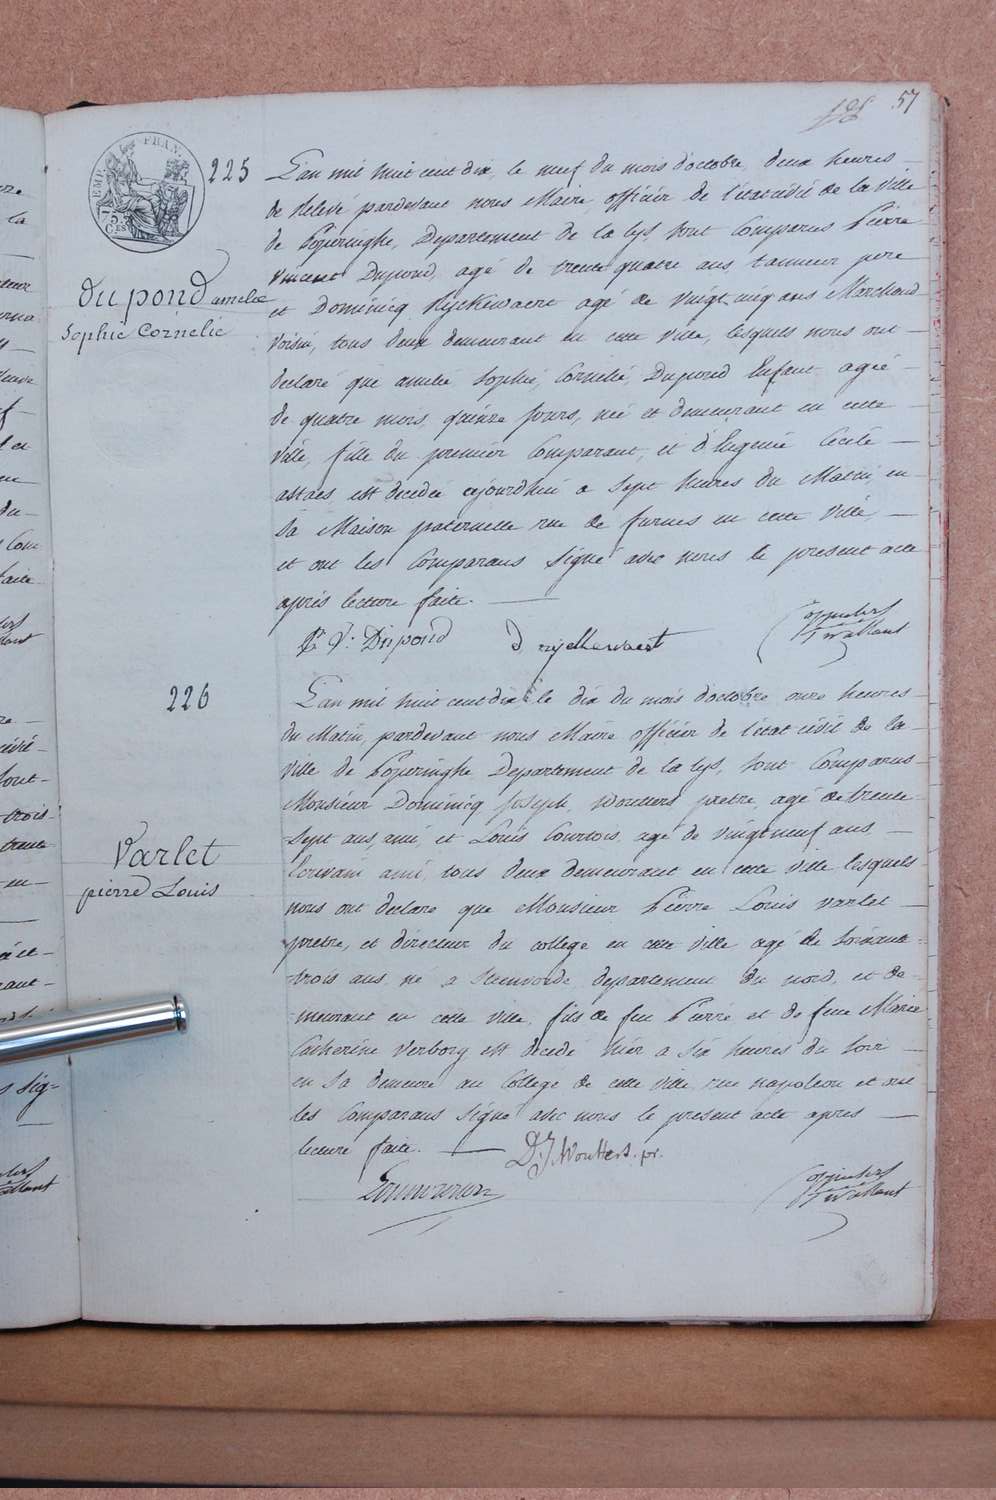 57
225
Dupond amelie
Sophie Cornelie
L'an mil huit cent dix, le neuf du mois d'octobre, deux heures
de Relevé pardevant nous Maire, officier de l'état civil de la Ville
de Poperinghe, Departement de la Lys, sont Comparus Pierre
vincent Dupond, agé de trente quatre ans tanneur pere
et Dominicq Ryckewaert agé de vingt cinq ans Marchand
Voisin, tous deux demeurant en cette ville, lesquels nous ont
declaré que amelie Sophie, Cornelie, Dupond Enfant agée
de quatre mois, quinze jours, née et demeurant en cette
ville, fille du premier Comparant, et d'Eugenie Cecile
astaes est decedée cejourdhui a sept heures du Matin, en
sa Maison paternelle rue de furnes en cette ville,
et ont les Comparans signé avec nous le present acte
après lecture faite.
P. V. Dupond
D ryckewaert
226
Varlet
pierre Louis
L'an mil huit cent dix le dix du mois d'octobre onze heures
du Matin, pardevant nous Maire officier de l'état civil de la
ville de Poperinghe Departement de la lys, sont Comparus
Monsieur Dominicq Joseph, Wouters pretre, agé de trente
sept ans, ami, et Louis Courtois, agé de vingt neuf ans,
Ecrivain ami, tous deux demeurant en cette ville lesquels
nous ont declaré que Monsieur Pierre Louis varlet
pretre, et directeur du college en cette ville agé de soixante
trois ans, né a Steenvorde, departement du nord, et de-
meurant en cette ville, fils de feu Pierre et de feue Marie
Catherine Verborg est decedé hier a six heures du soir
en sa demeure au College de cette ville rue napoleon et ont
les Comparans signe avec nous le present acte apres
lecture faite.
D. J. Wouters. pr.